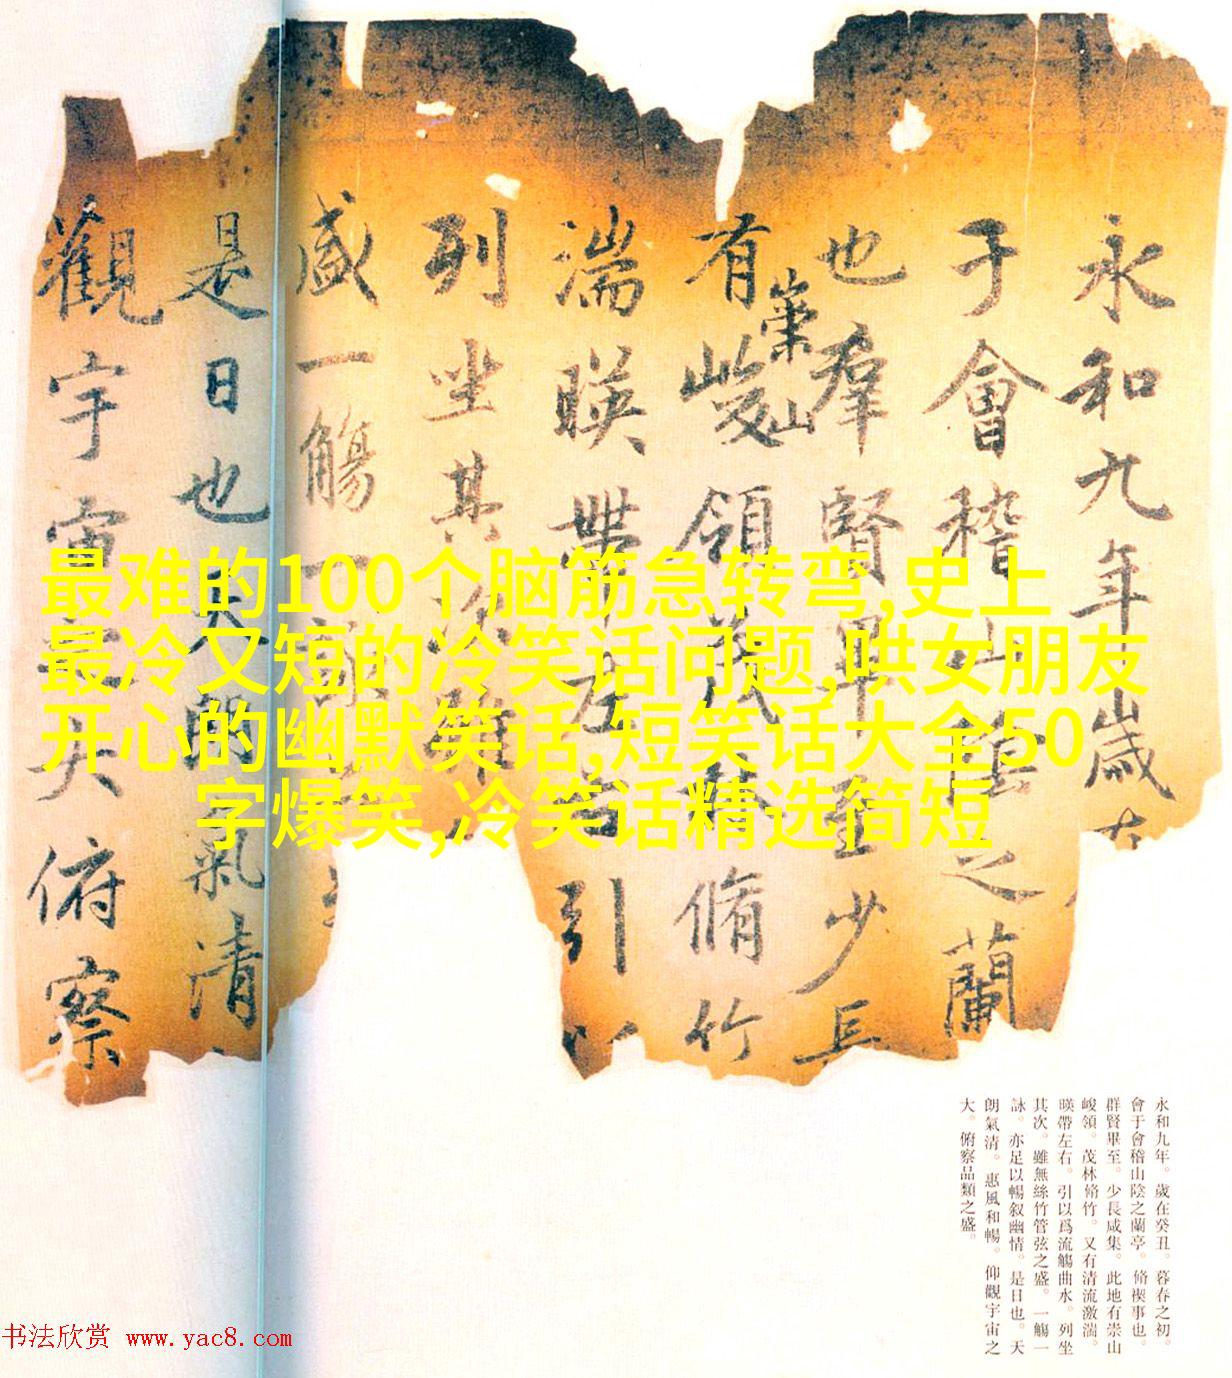 永和九年歲在
于會稽山陰之蘭
也羣賢畢至少長
有崇山峻領茂林脩竹
湍暎帶左右引以
列坐其次雖
盛一觴一詠
是日也天朗氣清
觀宇宙之大俯察
最难的100个脑筋急转弯,史上
最冷又短的冷笑话问题,哄女朋友
开心的幽默笑话,短笑话大全50
字爆笑,冷笑话精选简短
永和九年。歲在癸丑。暮春之初。
會于會稽山陰之蘭亭。脩禊事也。
群賢畢至。少長咸集。此地有崇山
峻領。茂林脩竹。又有清流激湍。
暎帶左右。引以爲流觴曲水。列坐
其次。雖無絲竹管弦之盛。一觴一
詠。亦足以暢叙幽情。是日也。天
朗氣清。惠風和暢。仰觀宇宙之
大。俯察品類之盛。
书法欣赏 www.yac8.com